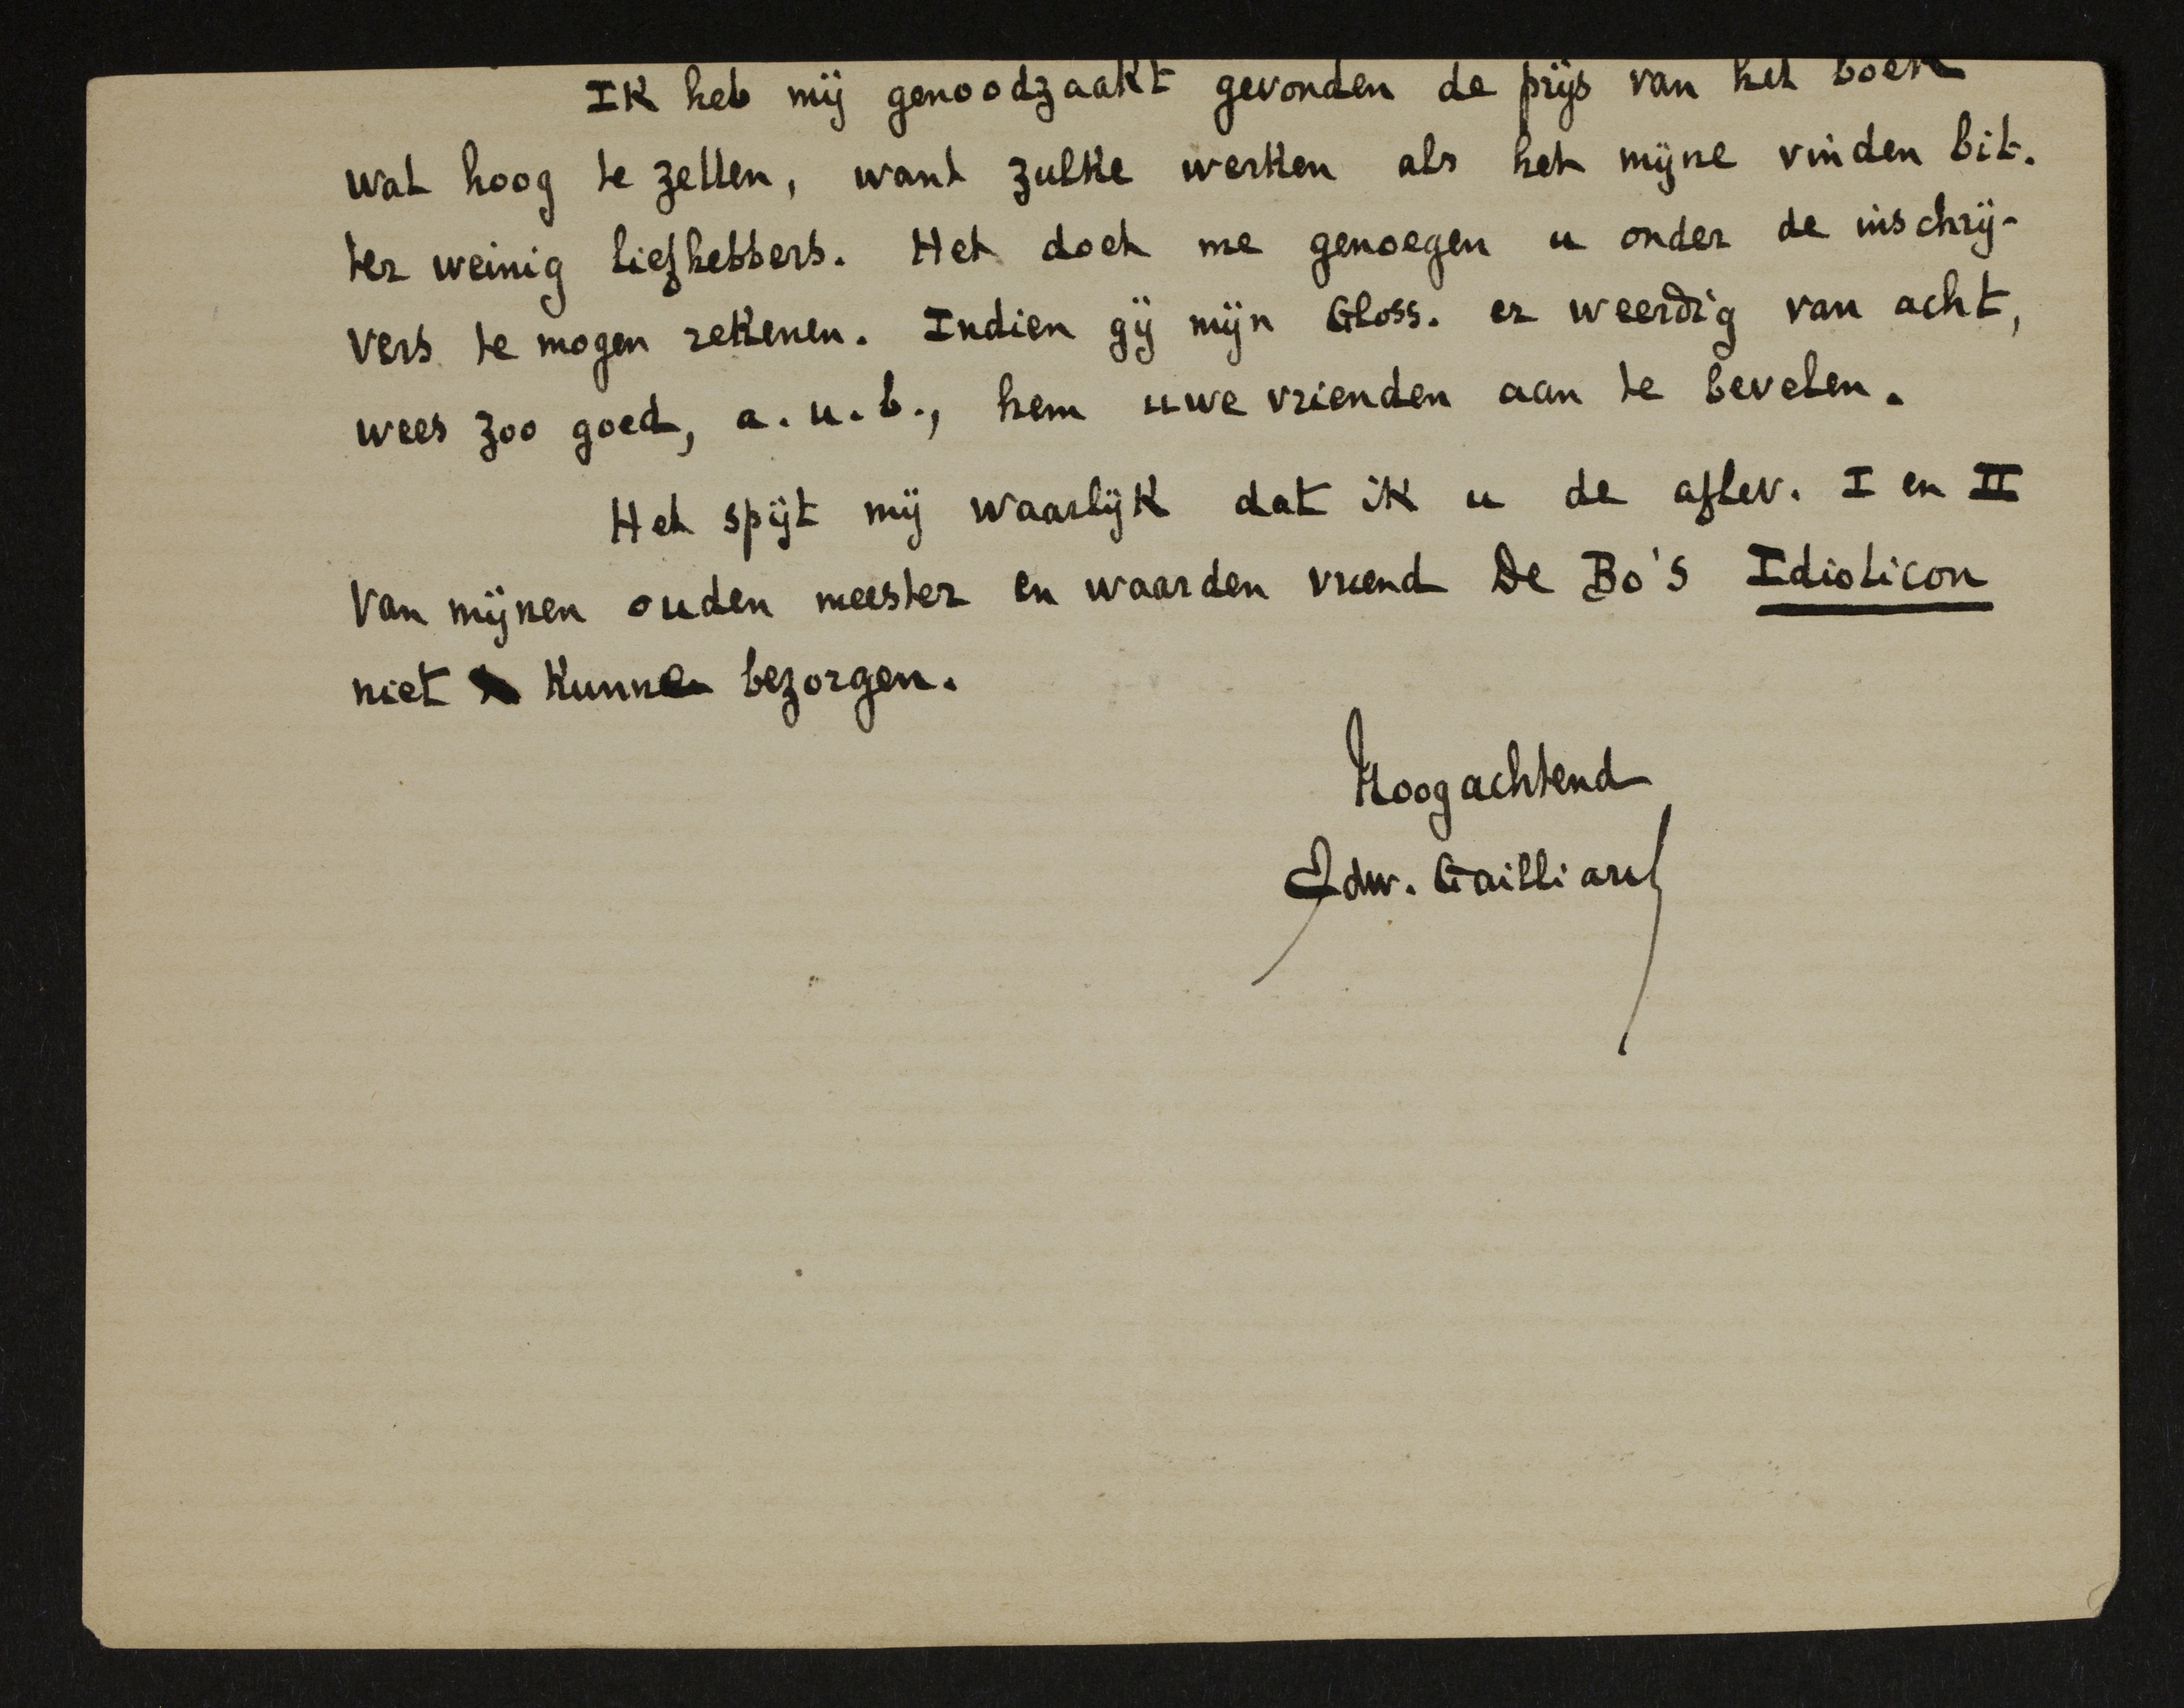 Ik heb mij genoodzaakt gevonden de prijs van het boek
wat hoog te zetten, want zulke werken als het mijne vinden bit-
ter weinig liefhebbers. Het doet me genoegen u onder de inschrij-
vers te mogen rekenen. Indien gij mijn Gloss. er weerdig van acht,
wees zoo goed, a.u.b., hem uwe vrienden aan te bevelen.
Het spijt mij waarlijk dat ik u de aflev. I en II
van mijnen ouden meester en waarden vriend De Bo's Idioticon
niet kunne bezorgen.
Hoogachtend
Edw. Gailliard